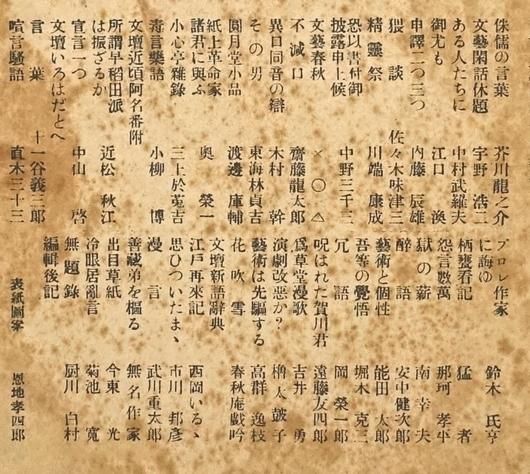 侏儒の言葉 芥川龍之介
文藝閑話休題 宇野浩二
ある人たちに 中村武羅夫
御尤も 江口渙
申譯二つ三つ 内藤辰雄
猥談 佐々木味津三
精靈祭 川端康成
恐以書付御
披露申上候 中野三千三
文藝春秋 ×〇△
不減口 齋藤龍太郎
異口同音の辯 木村幹
その男 東海林貞吉
圓月堂小品 渡邊庫輔
紙上革命家
諸君に與ふ 奥榮一
小心亭雜錄 三上於菟吉
毒言藥語 小柳博
文壇近頃阿名番附
所謂早稻田派
は振ざるか 近松秋江
宣言一つ 中山啓
文壇いろはだとへ
言葉 十一谷義三郎
喧言騷語 直木三十三
プロレ作家
に誨ゆ 鈴木氏亨
柄甕看記 猛者
怨言數萬 那珂孝平
獄の薪 南幸夫
醉語 安中健次郎
藝術と個性 能田太郎
吾等の覺悟 堀木克三
冗語 岡榮一郎
呪はれた賀川君 遠藤友四郎
爲草堂漫歌 吉井勇
演劇改惡か? 櫓太鼓子
藝術は先驅する 高群逸枝
花吹雪 春秋庵戲吟
文壇新語辭典
江戸再來記 西岡いるゝ
思ひついたまゝ 市川邦彦
漫言 武川重太郎
善藏弟を樞る 無名作家
出目草紙 今東光
冷眼居亂言 菊池寛
無題錄 厨川白村
編輯後記
表紙圖案 恩地孝四郎